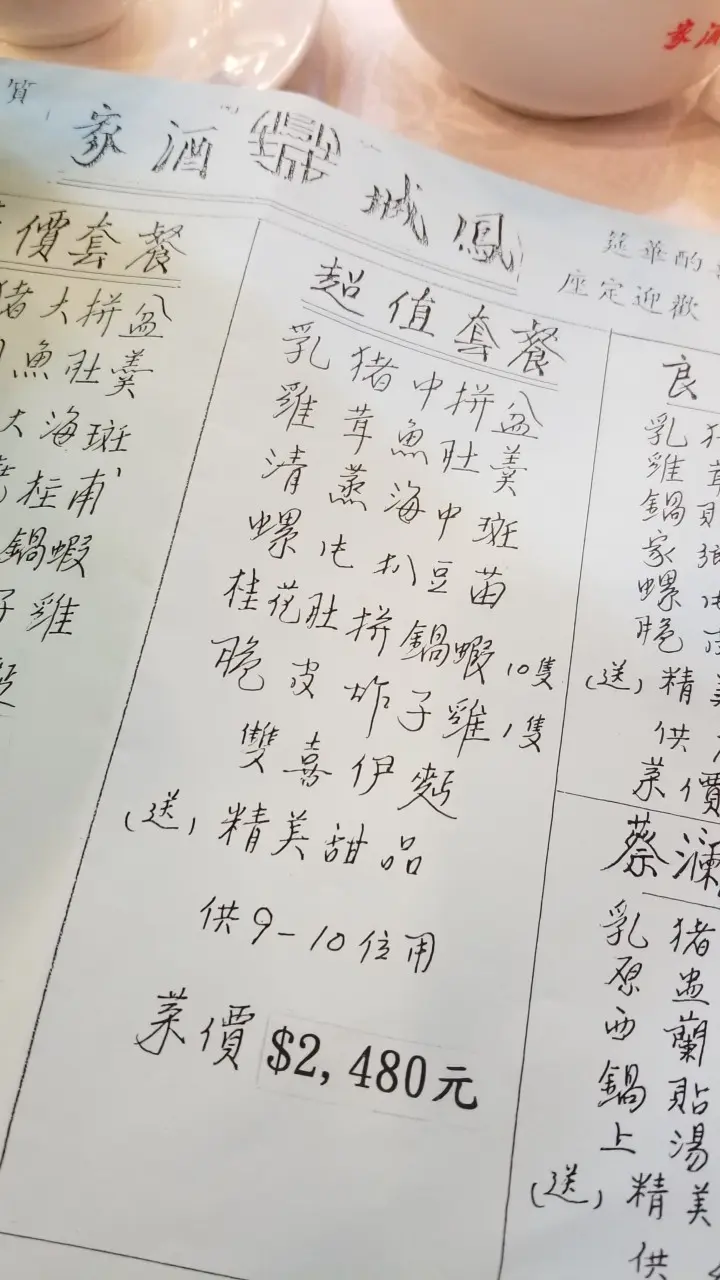 家酒
質
家酒 城鳳
筵華酌
座定迎歡
價套餐
猪大拼盆
魚肚羹
大海斑
鍋蝦
子雞
超值套餐
乳猪中拼盆
雞茸魚肚羹
清蒸海中斑
螺片扒豆苗
桂花肚拼鍋蝦10隻
脆皮炸子雞1隻
雙喜伊麵
(送)精美甜品
供9-10位用
菜價$2,480元
良
乳猪
雞茸
鍋貼
家鄉
螺片
脆皮
(送)精美
供
菜價
蔡瀾
乳猪
原盅
西蘭
鍋貼
上湯
(送)精美
供